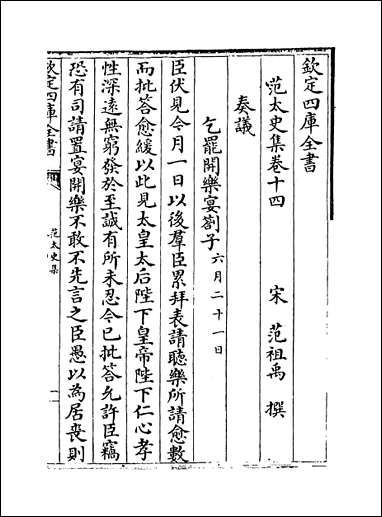 欽定四庫全書
范太史集卷十四　宋　范祖禹　撰
奏議
乞罷開樂宴劄子六月二十一日
臣伏見今月一日以後羣臣累拜表請聽樂所請愈數
而批答愈緩以此見太皇太后陛下皇帝陛下仁心孝
性深遠無窮發於至誠有所未忍今已批答允許臣竊
恐有司請置宴開樂不敢不先言之臣愚以為居喪則
欽定四庫全書
范太史集
一